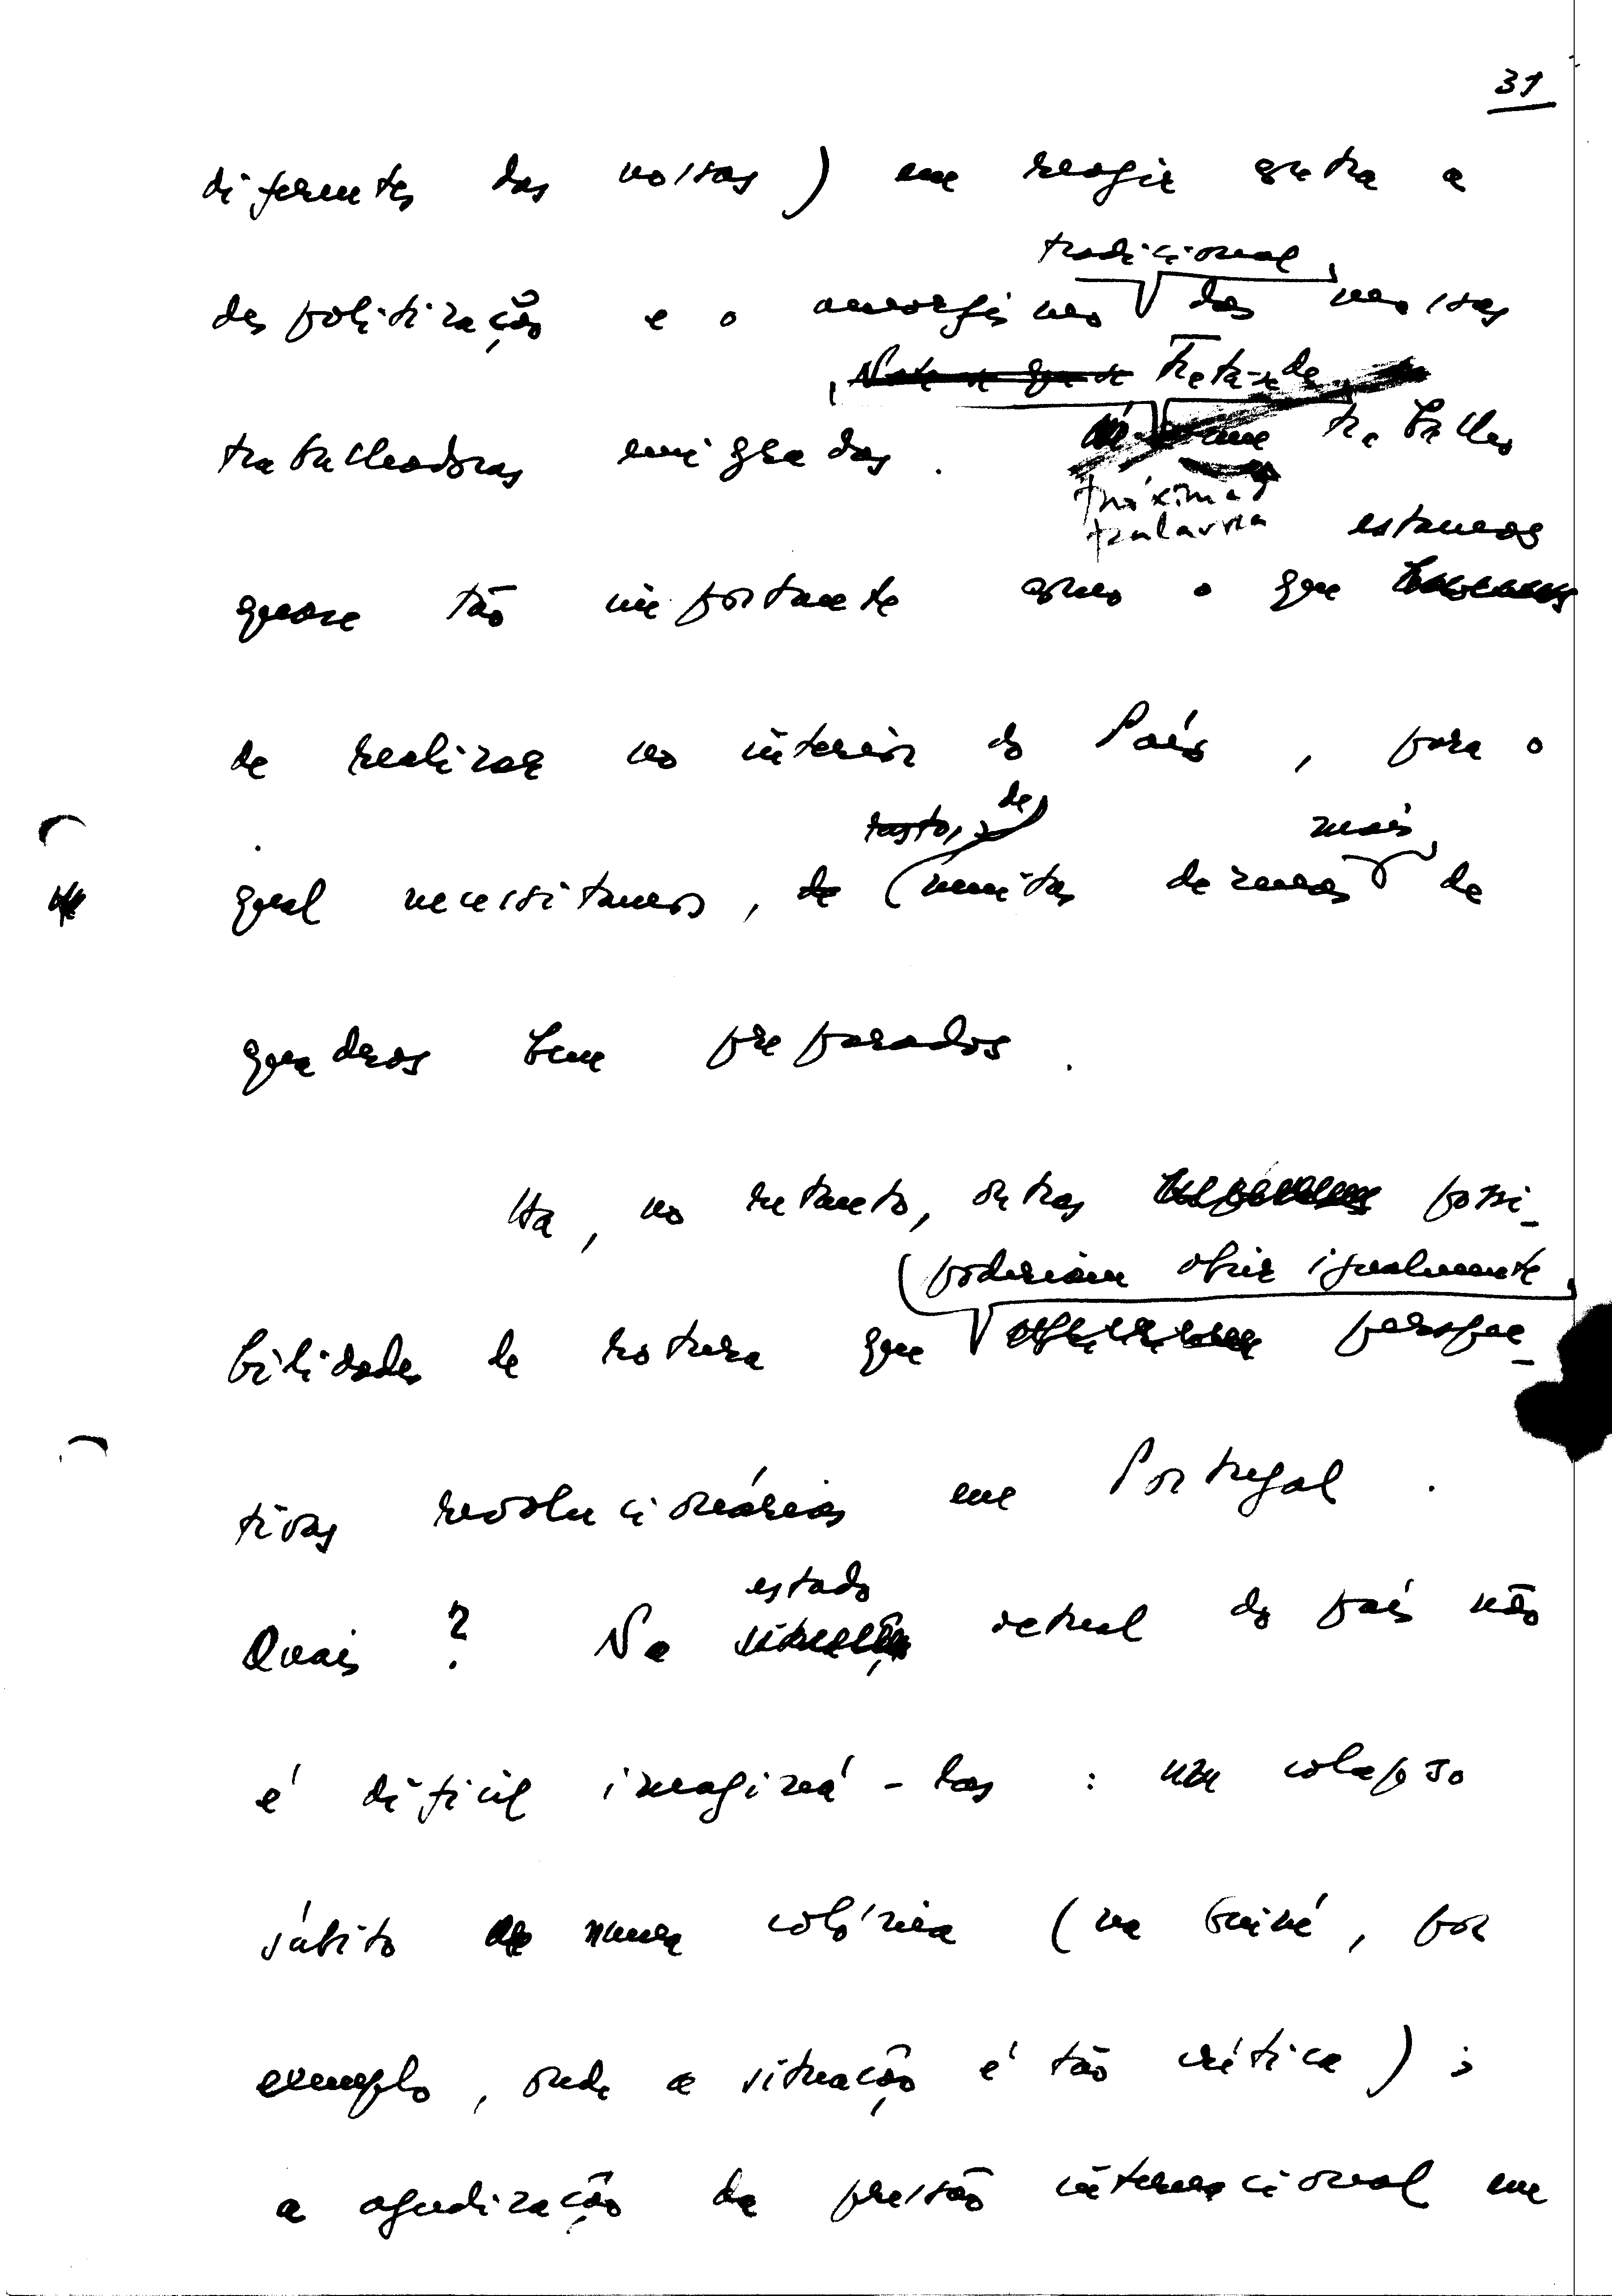 31
diferentes das nossas) em reagir contra a
tradicional
despolitização e o amorfismo das nossas
Trata-se de
trabalhadoras emigradas. um trabalho
próxima
palavra
estamos
quase tão importante como o que
de realizar no interior do País, para o
tanto, de mais
qual necessitamos, de muitas dezenas de
quadros bem preparados.
Há, no entanto, outras possi-
poderiam abrir igualmente
bilidades de rotura que perspec-
tivas revolucionárias em Portugal.
estado
Quais? No situação actual do país não
é difícil imaginá-las: um colapso
súbito numa colónia (na Guiné, por
exemplo, onde a situação é tão crítica);
a agudização da pressão internacional em